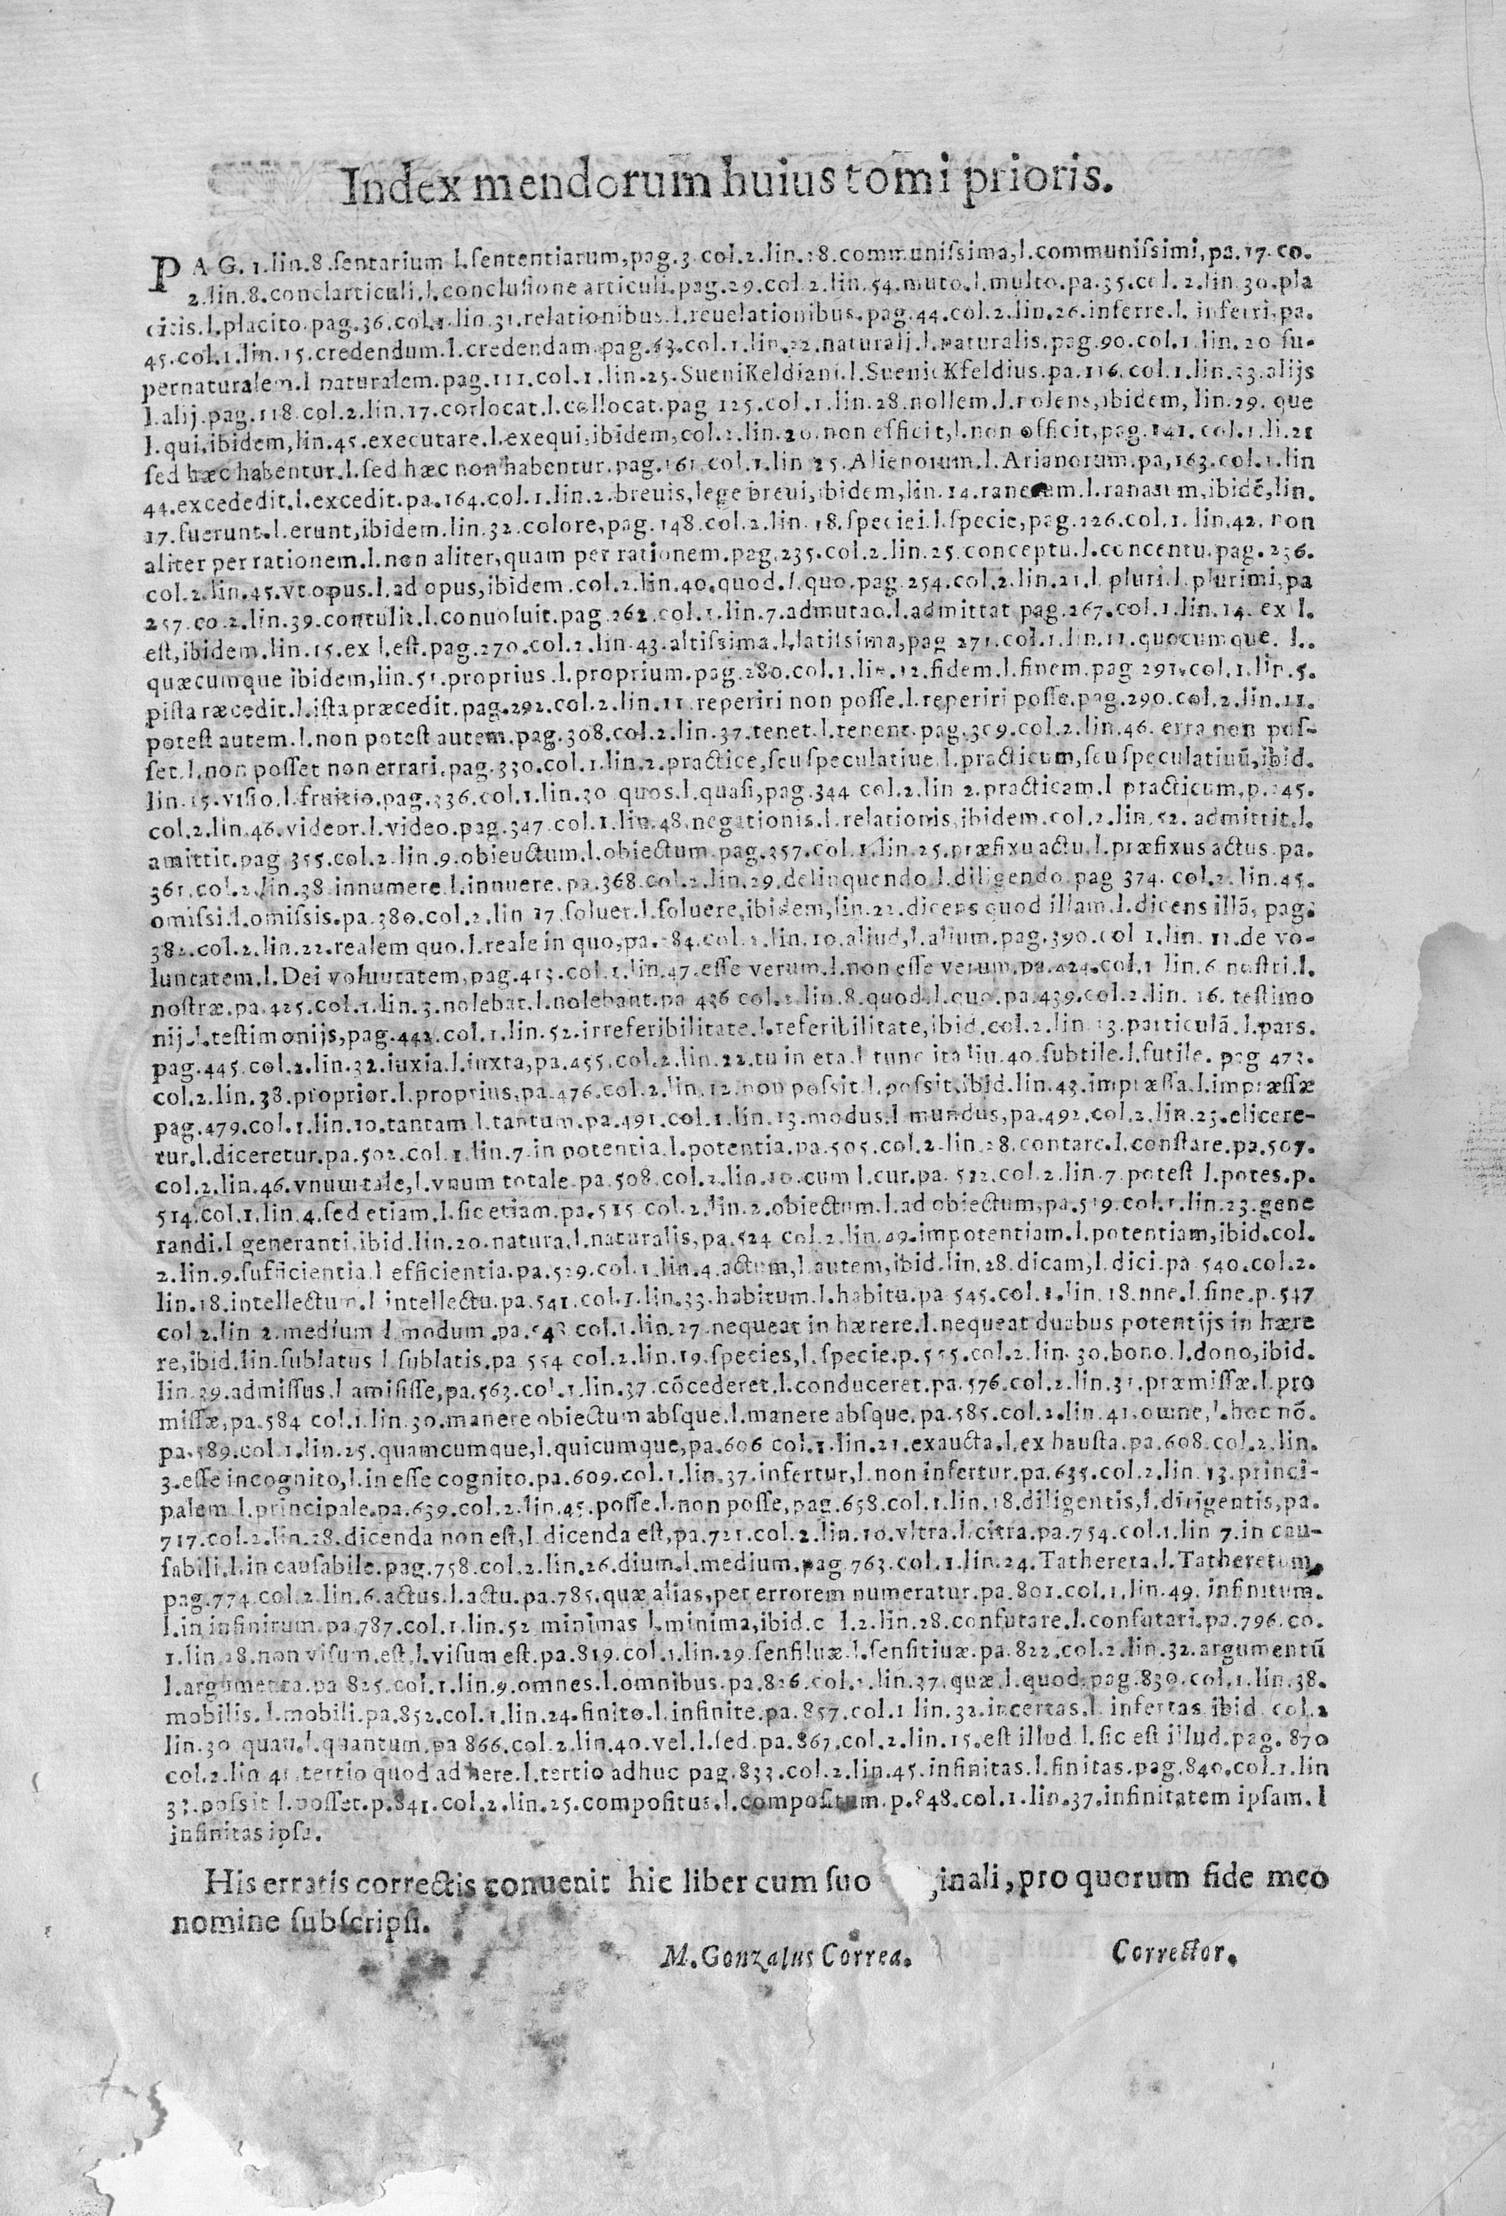 Index mendorum huius tomi prioris.
PAG. 1.lin.8.sentarium l.sententiarum,pag.3 col.2.lin.28.communissima,l.communissimi,pa.17.co.
2.lin.8.conclarticuli.l.conclusione articuli.pag.29.col.2.lin.54.muto.l.multo.pa.35.col.2.lin.30.pla
citis.l.placito.pag.36.col.1.lin.31.relationibus.l.reuelationibus.pag.44.col.2.lin.26.inferre.l.inferri,pa.
45.col.1.lin.15.credendum.l.credendam.pag.63.col.1.lin.22.naturali.l.naturalis.pag.90.col.1.lin.20 su-
pernaturalem.l naturalem.pag.111.col.1.lin.25.SueniKeldiani.l.SueniKfeldius.pa.116.col.1.lin.33.alijs
l.alij.pag.118.col.2.lin.17.corlocat.l.collocat.pag 125.col.1.lin.28.nollem.l.nolens,ibidem,lin.29. que
l.qui,ibidem,lin.45.executare.l.exequi,ibidem,col.2.lin.20.non efficit,l.non officit,pag.141.col.1.li.21
sed hæc habentur.l.sed hæc non habentur.pag.161.col.1.lin 25.Alienorum.l.Arianorum.pa,163.col.1.lin
44.excededit.l.excedit.pa.164.col.1.lin.2.breuis,lege breui,ibidem,lin.14. l.ranarum,ibidē,lin.
17.fuerunt.l.erunt,ibidem.lin.32.colore,pag.148.col.2.lin.18.speciei.l.specie,pag.226.col.1.lin.42. non
aliter per rationem.l.non aliter,quam per rationem.pag.235.col.2.lin.25.conceptu.l.concentu.pag.236.
col.2.lin.45.vt opus.l.ad opus,ibidem.col.2.lin.40.quod.l.quo.pag.254.col.2.lin.21.l pluri.l.plurimi,pa
257.co.2.lin.39.contulit.l.conuoluit.pag.262.col.1.lin.7.admutao.l.admittat pag.267.col.1.lin.14. ex l.
est,ibidem.lin.15.ex l.est.pag.270.col.2.lin.43.altissima.l.latissima,pag 271.col.1.lin.11.quocumque. l..
quæcumque ibidem,lin.51.proprius.l.proprium.pag.280.col.1.lin.12.fidem.l.finem.pag 291.col.1.lin.5.
pista ræcedit.l.ista præcedit.pag.292.col.2.lin.11.reperiri non posse.l.reperiri posse.pag.290.col.2.lin.11.
potest autem.l.non potest autem.pag.308.col.2.lin.37.tenet.l.tenent.pag.309.col.2.lin.46. erra non pos-
set.l.non posset non errari.pag.330.col.1.lin.2.practice,seu speculatiue.l.practicum,seu speculatiuū,ibid.
lin.15.visio.l.fruitio.pag.336.col.1.lin.30 quos.l.quasi,pag.344 col.2.lin 2.practicam.l practicum,p.345.
col.2.lin.46.videor.l.video.pag.347.col.1.lin.48.negationis.l.relationis,ibidem.col.2.lin.52. admittit.l.
amittit.pag 355.col.2.lin.9.obieuctum.l.obiectum.pag.357.col.1.lin.25.præfixu actu.l.præfixus actus.pa.
361.col.2.lin.38 innumere.l.innuere.pa.368.col.2.lin.29.delinquendo.l.diligendo.pag 374. col.2.lin.45.
omissi.l.omissis.pa.380.col.2.lin 17.soluer.l.soluere,ibidem,lin.22.dicens quod illam.l.dicens illā, pag.
382.col.2.lin.22.realem quo.l.reale in quo,pa.384.col.2.lin.10.aliud,l.alium.pag.390.col 1.lin. 11.de vo-
luntatem.l.Dei voluutatem,pag.413.col.1.lin.47.esse verum.l.non esse verum.pa.424.col.1 lin.6 nostri.l.
nostræ.pa.425.col.1.lin.3.nolebat.l.nolebant.pa 436 col.2.lin.8.quod.l.quo.pa.439.col.2.lin. 16. testimo
nij.l.testimonijs,pag.442.col.1.lin.52.irreferibilitate.l.referibilitate,ibid.col.2.lin 13.particulā.l.pars.
pag.445.col.2.lin.32.iuxia.l.iuxta,pa.455.col.2.lin.22.tu in eta.l tunc ita liu.40.subtile.l.futile. pag 473.
col.2.lin.38.proprior.l.proprius,pa.476.col.2.lin.12.non possit.l.possit.ibid.lin.43.impræssa.l.impræssæ
pag.479.col.1.lin.10.tantam l.tantum.pa.491.col.1.lin.13.modus.l mundus,pa.492.col.2.lin.23.elicere-
tur.l.diceretur.pa.502.col.1.lin.7.in potentia.l.potentia.pa.505.col.2.lin.28.contare.l.constare.pa.507.
col.2.lin.46.vnum tale,l.vnum totale.pa.508.col.2.lin.10.cum l.cur.pa.512.col.2.lin.7.potest l.potes.p.
514.col.1.lin.4.sed etiam.l.sic etiam.pa.515 col.2.lin.2.obiectum.l.ad obiectum,pa.519.col.1.lin.23.gene
randi.l generanti.ibid.lin.20.natura.l.naturalis,pa.524 col.2.lin.49.impotentiam.l.potentiam,ibid.col.
2.lin.9.sufficientia.l efficientia.pa.529.col.1.lin.4.actum,l.autem,ibid.lin.28.dicam,l.dici.pa 540.col.2.
lin.18.intellectum.l intellectu.pa.541.col.1.lin.33.habitum.l.habitu.pa 545.col.1.lin.18.nne.l.sine.p.547
col 2.lin 2.medium.l.modum.pa.548 col.1.lin.27.nequeat in hærere.l.nequeat duabus potentijs in hære
re,ibid.lin.sublatus l.sublatis.pa 554 col.2.lin.19.species,l.specie.p.555.col.2.lin.30.bono.l.dono,ibid.
lin.39.admissus.l amisisse,pa.563.col.1.lin.37.cōcederet.l.conduceret.pa.576.col.2.lin.31.præmissæ.l.pro
missæ,pa.584 col.1.lin.30.manere obiectum absque.l.manere absque,pa.585.col.2.lin.41.omne,l.hoc nō.
pa.589.col.1.lin.25.quamcumque,l.quicumque,pa.606 col.1.lin.21.exaucta.l.ex hausta.pa.608.col.2.lin.
3.esse incognito,l.in esse cognito.pa.609.col.1.lin.37.infertur,l.non infertur.pa.635.col.2.lin.13.princi-
palem.l.principale.pa.639.col.2.lin.45.posse.l.non posse,pag.658.col.1.lin.18.diligentis,l.dirigentis,pa.
717.col.2.lin.28.dicenda non est,l.dicenda est,pa.721.col.2.lin.10.vltra.l.citra.pa.754.col.1.lin 7.in cau-
sabili.l.in causabile.pag.758.col.2.lin.26.dium.l.medium,pag.763.col.1.lin.24.Tathereta.l.Tatheretum,
pag.774.col.2.lin.6.actus.l.actu.pa.785.quæ alias,per errorem numeratur.pa.801.col.1.lin.49. infinitum.
l.in infinitum.pa.787.col.1.lin.52 minimas l.minima,ibid.c l.2.lin.28.confutare.l.confutari.pa.796.co.
1.lin.28.non visum.est,l.visum est.pa.819.col.1.lin.29.senfiluæ.l.sensitiuæ.pa.822.col.2.lin.32.argumentū
l.argumenta.pa 825.col.1.lin.9.omnes.l.omnibus.pa.826.col.1.lin.37.quæ.l.quod.pag.830.col.1.lin.38.
mobilis.l.mobili.pa.852.col.1.lin.24.finito.l.infinite.pa.857.col.1 lin.32.incertas.l. infertas.ibid. col.2
lin.30 quan.l.quantum.pa 866.col.2.lin.40.vel.l.sed.pa.867.col.2.lin.15.est illud l.sic est illud.pag. 870
col.2.lin 41.tertio quod ad here.l.tertio adhuc pag.833.col.2.lin.45.infinitas.l.finitas.pag.840.col.1.lin
33.possit l.posset.p.841.col.2.lin.25.compositus.l.compositum.p.848.col.1.lin.37.infinitatem ipsam.l
infinitas ipsa.
His erratis correctis conuenit hic liber cum suo inali,pro quorum fide meo
nomine subscripsi.
M. Gonzalus Correa. Corrector.